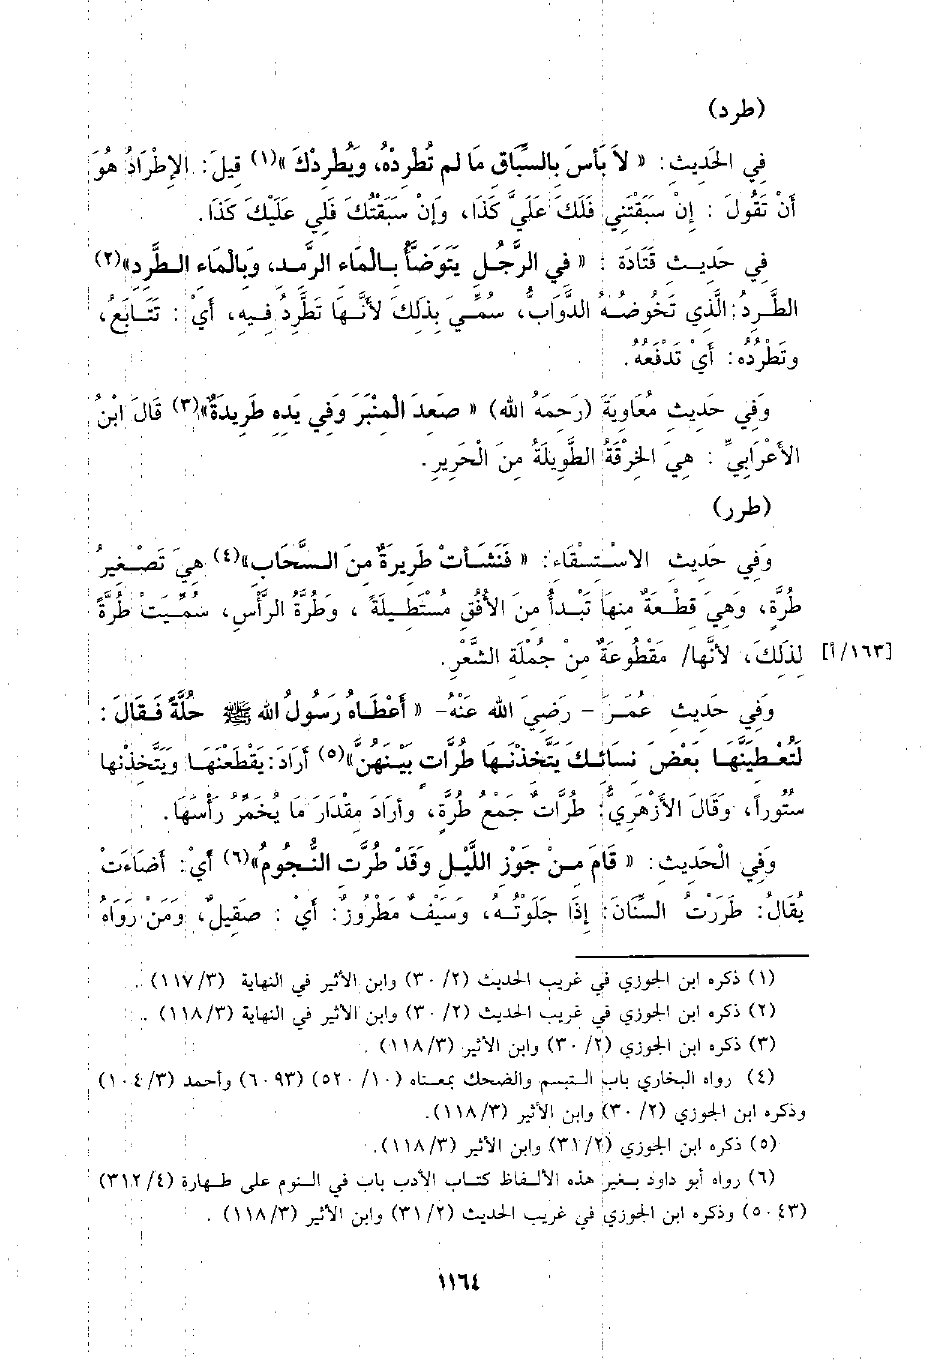 (طرد)
في الحَديث: « لاَ بَأسَ بالسِّبَاق مَا لم تُطردْهُ، ويُطردْكَ »(١) قيلَ: الإطْرَادُ هُوَ
أَنْ تَقُولَ : إنْ سَبَقْتَني فَلَكَ عَلَيَّ كَذَا، وإنْ سَبَقْتُكَ فَلي عَلَيْكَ كَذَا.
في حَديث قَتَادَة : « في الرَّجُل يَتَوَضَّأُ بالمَاء الرَّمد، وَبالمَاء الطَّرد»(٢)
الطَّردُ: الَّذي تَخُوضُهُ الدَّوَابُّ، سُمِّيَ بذلكَ لأنَّهَا تَطَّردُ فيه، أيْ : تَتَابَعُ،
وتَطْرُدُه: أَيْ تَدْفَعُهُ.
وَفي حَديث مُعَاويَةَ (رَحمَهُ الله) « صَعدَ المنْبَرَ وَفي يَده طَريدَةٌ»(٣) قَالَ ابْنُ
الأَعْرَابيِّ : هيَ الخرْقَةُ الطَّويلَةُ منَ الْحَرير.
(طرر)
وَفي حَديث الاسْتسْقَاء: « فَنَشَأتْ طَريرَةٌ منَ السَّحَاب»(٤) هيَ تَصْغيرُ
طُرَّة، وَهيَ قطْعَةٌ منهَا تَبْدأُ منَ الأُفُق مُسْتَطيلَةً ، وَطُرَّةُ الرَّأْس، سُمِّيَتْ طُرَّةً
لذَلكَ، لأنَّها/ مَقْطُوعَةٌ منْ جُمْلَة الشَّعْر. [١٦٣/أ]
وَفي حَديث عُمَرَ - رَضيَ الله عَنْهُ- « أَعْطَاهُ رَسُولُ الله ﷺ حُلَّةً فَقَالَ :
لَتُعْطيَنَّهَا بَعْضَ نسَائكَ يَتَّخذْنَهَا طُرَّات بَيْنَهُنَّ»(٥) أرَادَ: يَقْطَعْنَهَا وَيَتَّخذْنها
سُتُوراً، وَقَالَ الأَزْهَريُّ: طُرَّاتٌ جَمْعُ طُرَّة، وأرَادَ مقْدَارَ مَا يُخَمِّرُ رَأْسَهَا.
وَفي الْحَديث: « قَامَ منْ جَوْز اللَّيْل وَقَدْ طُرَّت النُّجُومُ»(٦) أيْ: أضَاءَتْ
يُقَالُ: طَرَرْتُ السِّنَانَ: إذَا جَلَوْتُهُ، وَسَيْفٌ مَطْرُورٌ: أيْ : صَقيلٌ، وَمَنْ رَوَاهُ
(١) ذكره ابن الجوزي في غريب الحديث (٢/ ٣٠) وابن الأثير في النهاية (٣/ ١١٧) .
(٢) ذكره ابن الجوزي في غريب الحديث (٢/ ٣٠) وابن الأثير في النهاية (٣/ ١١٨) .
(٣) ذكره ابن الجوزي (٢/ ٣٠) وابن الأثير (٣/ ١١٨) .
(٤) رواه البخاري باب التبسم والضحك بمعناه (١٠/ ٥٢٠) (٦٠٩٣) وأحمد (٣/ ١٠٤)
وذكره ابن الجوزي (٢/ ٣٠) وابن الأثير (٣/ ١١٨).
(٥) ذكره ابن الجوزي (٢/ ٣١) وابن الأثير (٣/ ١١٨).
(٦) رواه أبو داود بغير هذه الألفاظ كتاب الأدب باب في النوم على طهارة (٤/ ٣١٢)
(٥٠٤٣) وذكره ابن الجوزي في غريب الحديث (٢/ ٣١) وابن الأثير (٣/ ١١٨) .
١١٦٤